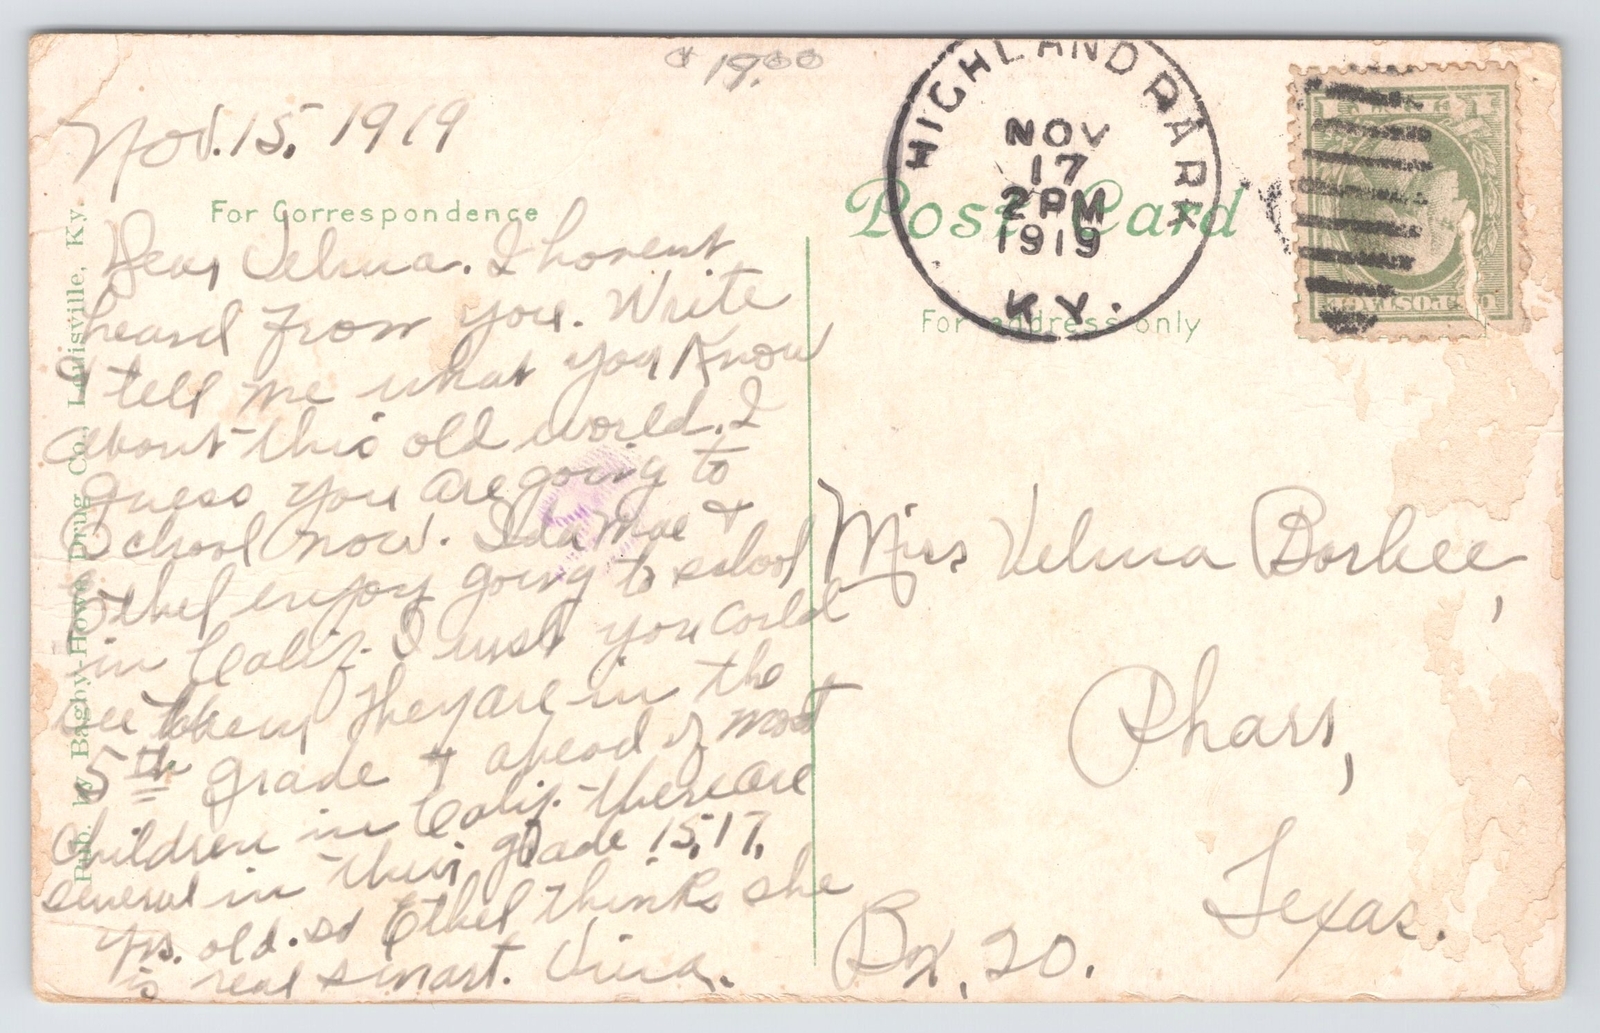 19.00
Nov. 15, 1919
For Correspondence
Dear Velma. I havent
heard from you. Write
& tell me what you know
about this old world. I
guess you are going to
School now. Ida Mae &
Ethel enjoy going to school
in Calif. I wish you could
see them They are in the
5th grade & ahead of most
Children in Calif. there are
several in their grade 15, 17,
yrs. old. so Ethel thinks she
is real smart.
Pub. by Bagby-Howe Drug Co., Louisville, Ky.
HIGHLAND PARK
NOV
17
2 PM
1919
KY.
Post Card
For address only
U.S. POSTAGE
Miss Velma
Pharr,
Texas.
Bx, 20.